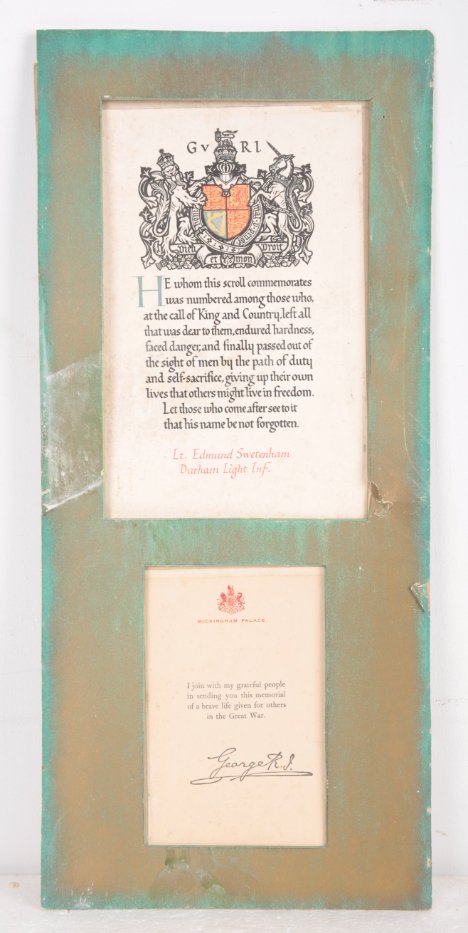 GV RI
Dieu et mon Droit
HE whom this scroll commemorates
was numbered among those who,
at the call of King and Country, left all
that was dear to them, endured hardness,
faced danger, and finally passed out of
the sight of men by the path of duty
and self-sacrifice, giving up their own
lives that others might live in freedom.
Let those who come after see to it
that his name be not forgotten.
Lt. Edmund Swetenham
Durham Light Inf.
BUCKINGHAM PALACE
I join with my grateful people
in sending you this memorial
of a brave life given for others
in the Great War.
George R.I.